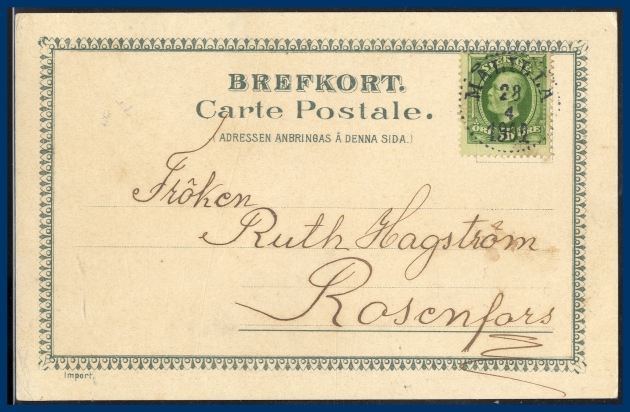 BREFKORT.
Carte Postale.
(ADRESSEN ANBRINGAS Å DENNA SIDA.)
MÅLILLA
28
4
ÖRE ÖRE
Fröken
Ruth Hagström
Rosenfors
Import.